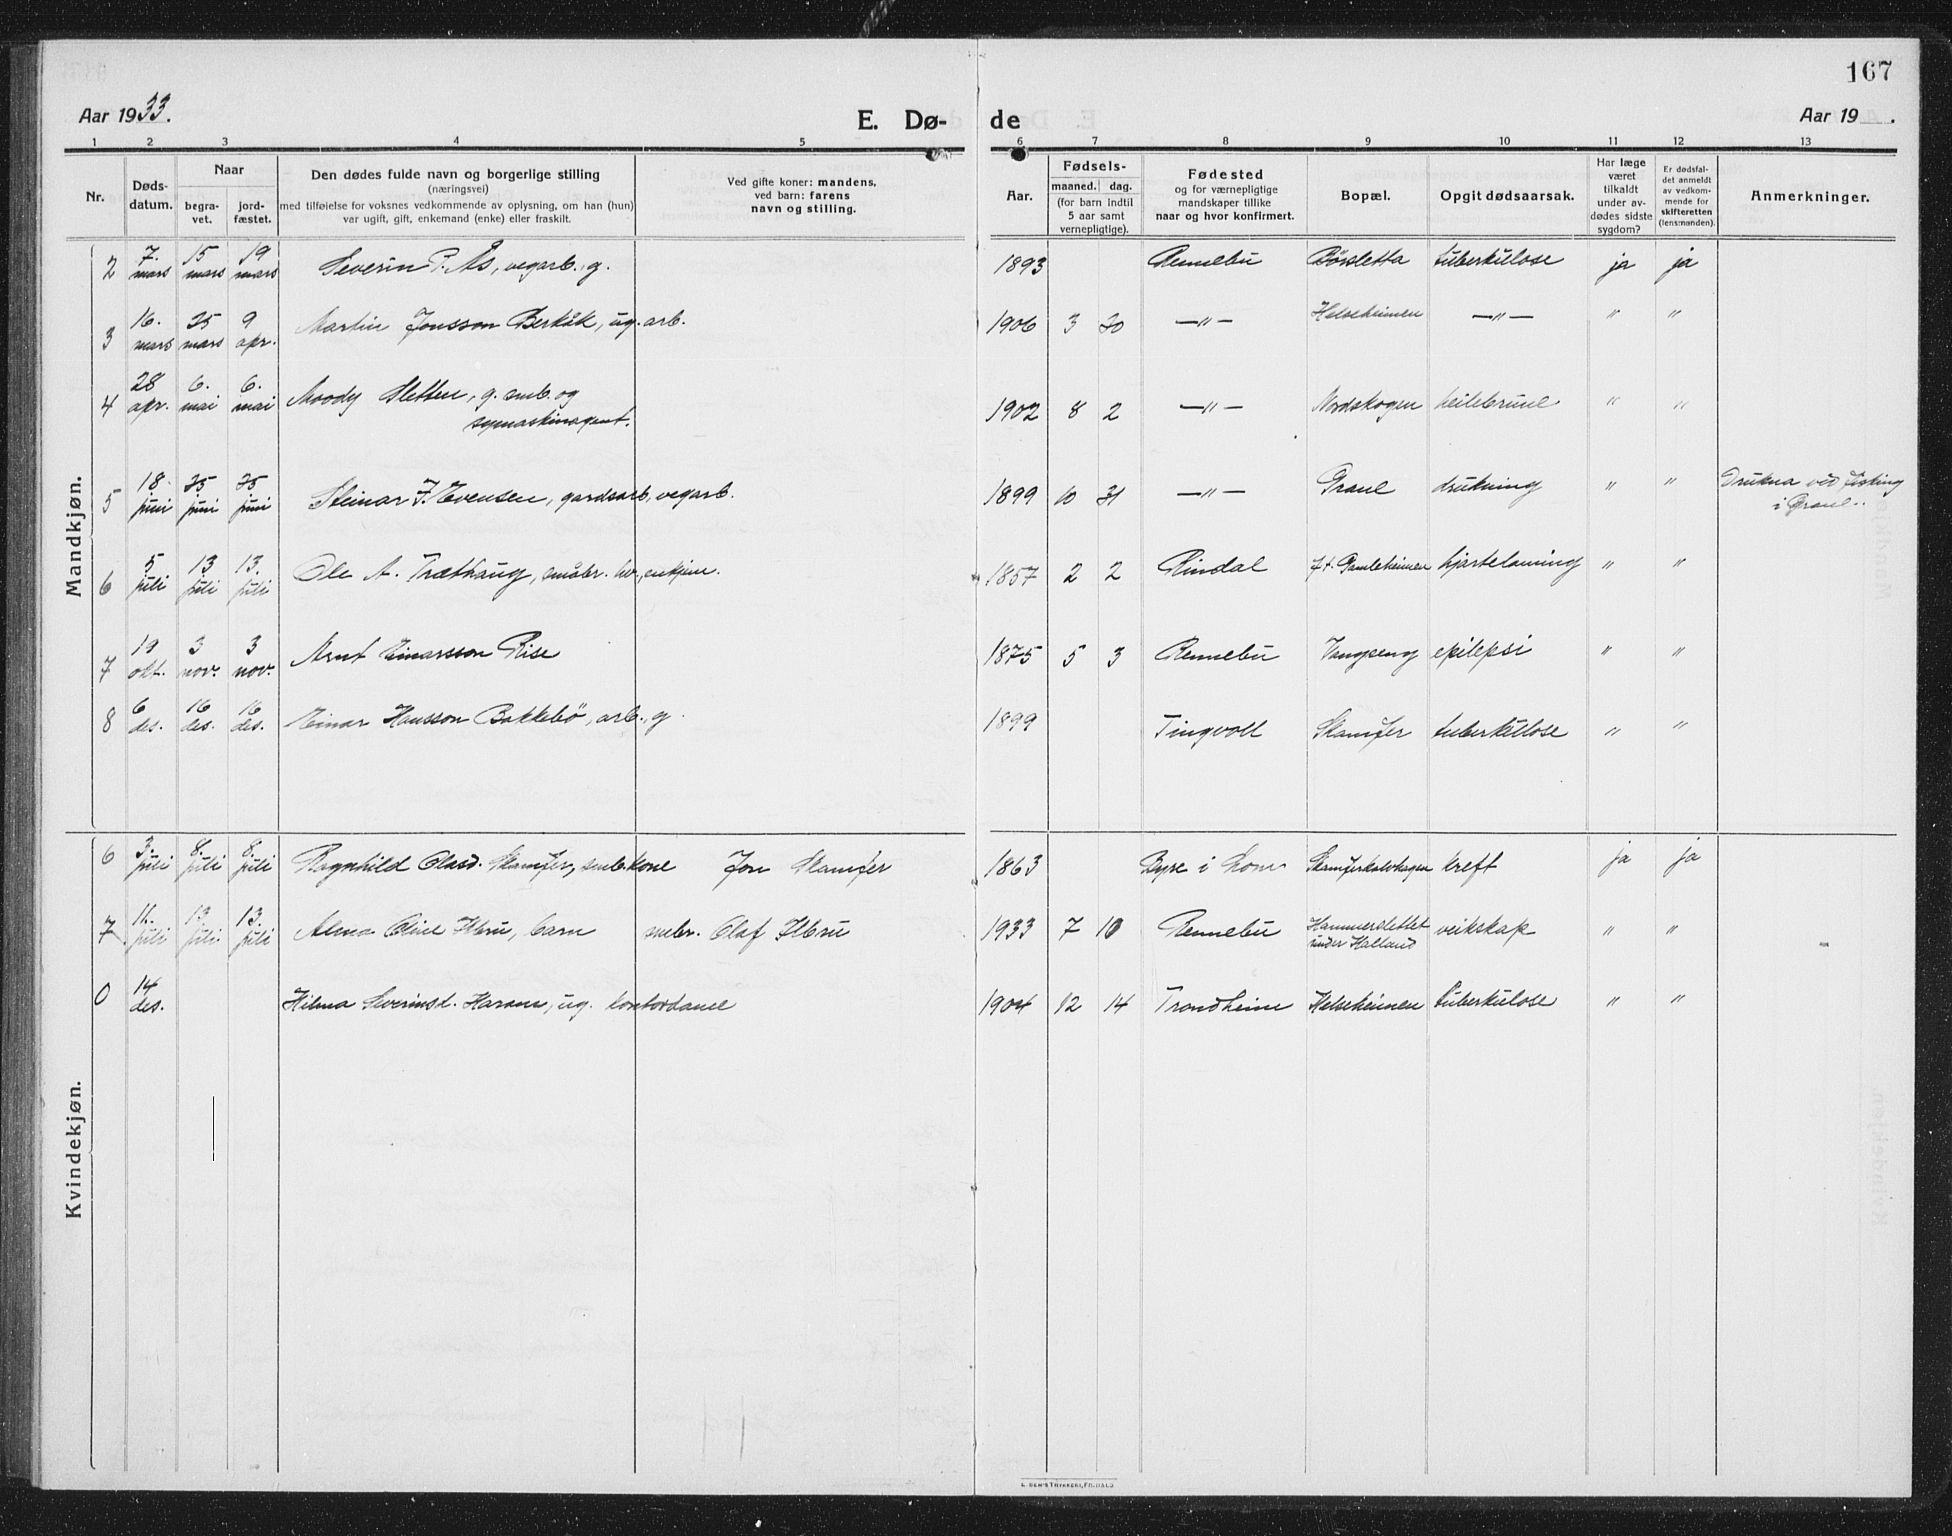 167
Aar 1933.
E. Dø-
de
Aar 19 .
1 2 3 4 5 6 7 8 9 10 11 12 13
Nr.
Døds-
datum.
Naar
begra-
vet.
jord-
fæstet.
Den dødes fulde navn og borgerlige stilling
(næringsvei)
med tilføielse for voksnes vedkommende av oplysning, om han (hun)
var ugift, gift, enkemand (enke) eller fraskilt.
Ved gifte koner: mandens,
ved barn: farens
navn og stilling.
Aar.
Fødsels-
maaned. dag.
(for barn indtil
5 aar samt
vernepligtige).
Fødested
og for værnepligtige
mandskaper tillike
naar og hvor konfirmert.
Bopæl.
Opgit dødsaarsak.
Har læge
været
tilkaldt
under av-
dødes sidste
sygdom?
Er dødsfal-
det anmeldt
av vedkom-
mende for
skifteretten
(lensmanden).
Anmerkninger.
Mandkjøn.
2 7. mars 15 mars 19 mars Severin P. Ås, vegarb., g. 1893 Rennebu tuberkulose ja ja
3 16. mars 25 mars 9 apr. Martin Jonsson Berkåk, ug. arb. 1906 3 20 —"— Helseheimen —"— " "
4 28 apr. 6. mai 6. mai Moody Sletten, g. smb. og
symaskinagent. 1902 8 2 —"— Nordskogen heilebrune " "
5 18. juni 25 juni 25 juni Steinar J. Evensen, gardsarb, vegarb. 1899 10 31 —"— drukning " " Drukna ved fisking
i
6 5 juli 13 juli 13. juli Ole A. Træthaug, småbr. hv., enkjem. 1857 2 2 Rindal Gamleheimen hjartelaming " "
7 19 okt. 3 nov. 3 nov. Arnt Einarsson Rise 1875 5 3 Rennebu Vangseng epilepsi " "
8 6 des. 16 des. 16 des. Einar Hansson Bakkebø, arb., g. 1899 Tingvoll Skamfer tuberkulose " "
Kvindekjøn.
6 3. juli 8. juli 8. juli Ragnhild Olasd. Skamfer, smb.kone Jon Skamfer 1863 i Lom kreft ja ja
7 11. juli 13 juli 13. juli Alma Oline Ilbru, barn smbr. Olaf Ilbru 1933 7 10 Rennebu Hammerslettet
under Halland veikskap " "
0 14 des. Hilma Severinsd. Haram, ug. kontordame 1904 12 14 Trondheim Helseheimen tuberkulose " "